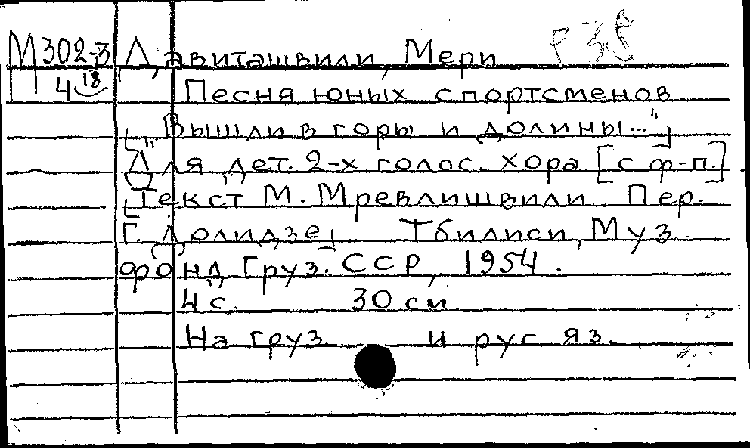 М302-3 Давиташвили, Мери
4 18 Песня юных спортсменов
["Вышли в горы и долины..."]
Для дет. 2-х голос. хора [с ф-п.]
[Текст М. Мревлишвили. Пер.
Г. Долидзе] Тбилиси, Муз.
фонд Груз. ССР, 1954.
4 с. 30 см
На груз. и рус яз.